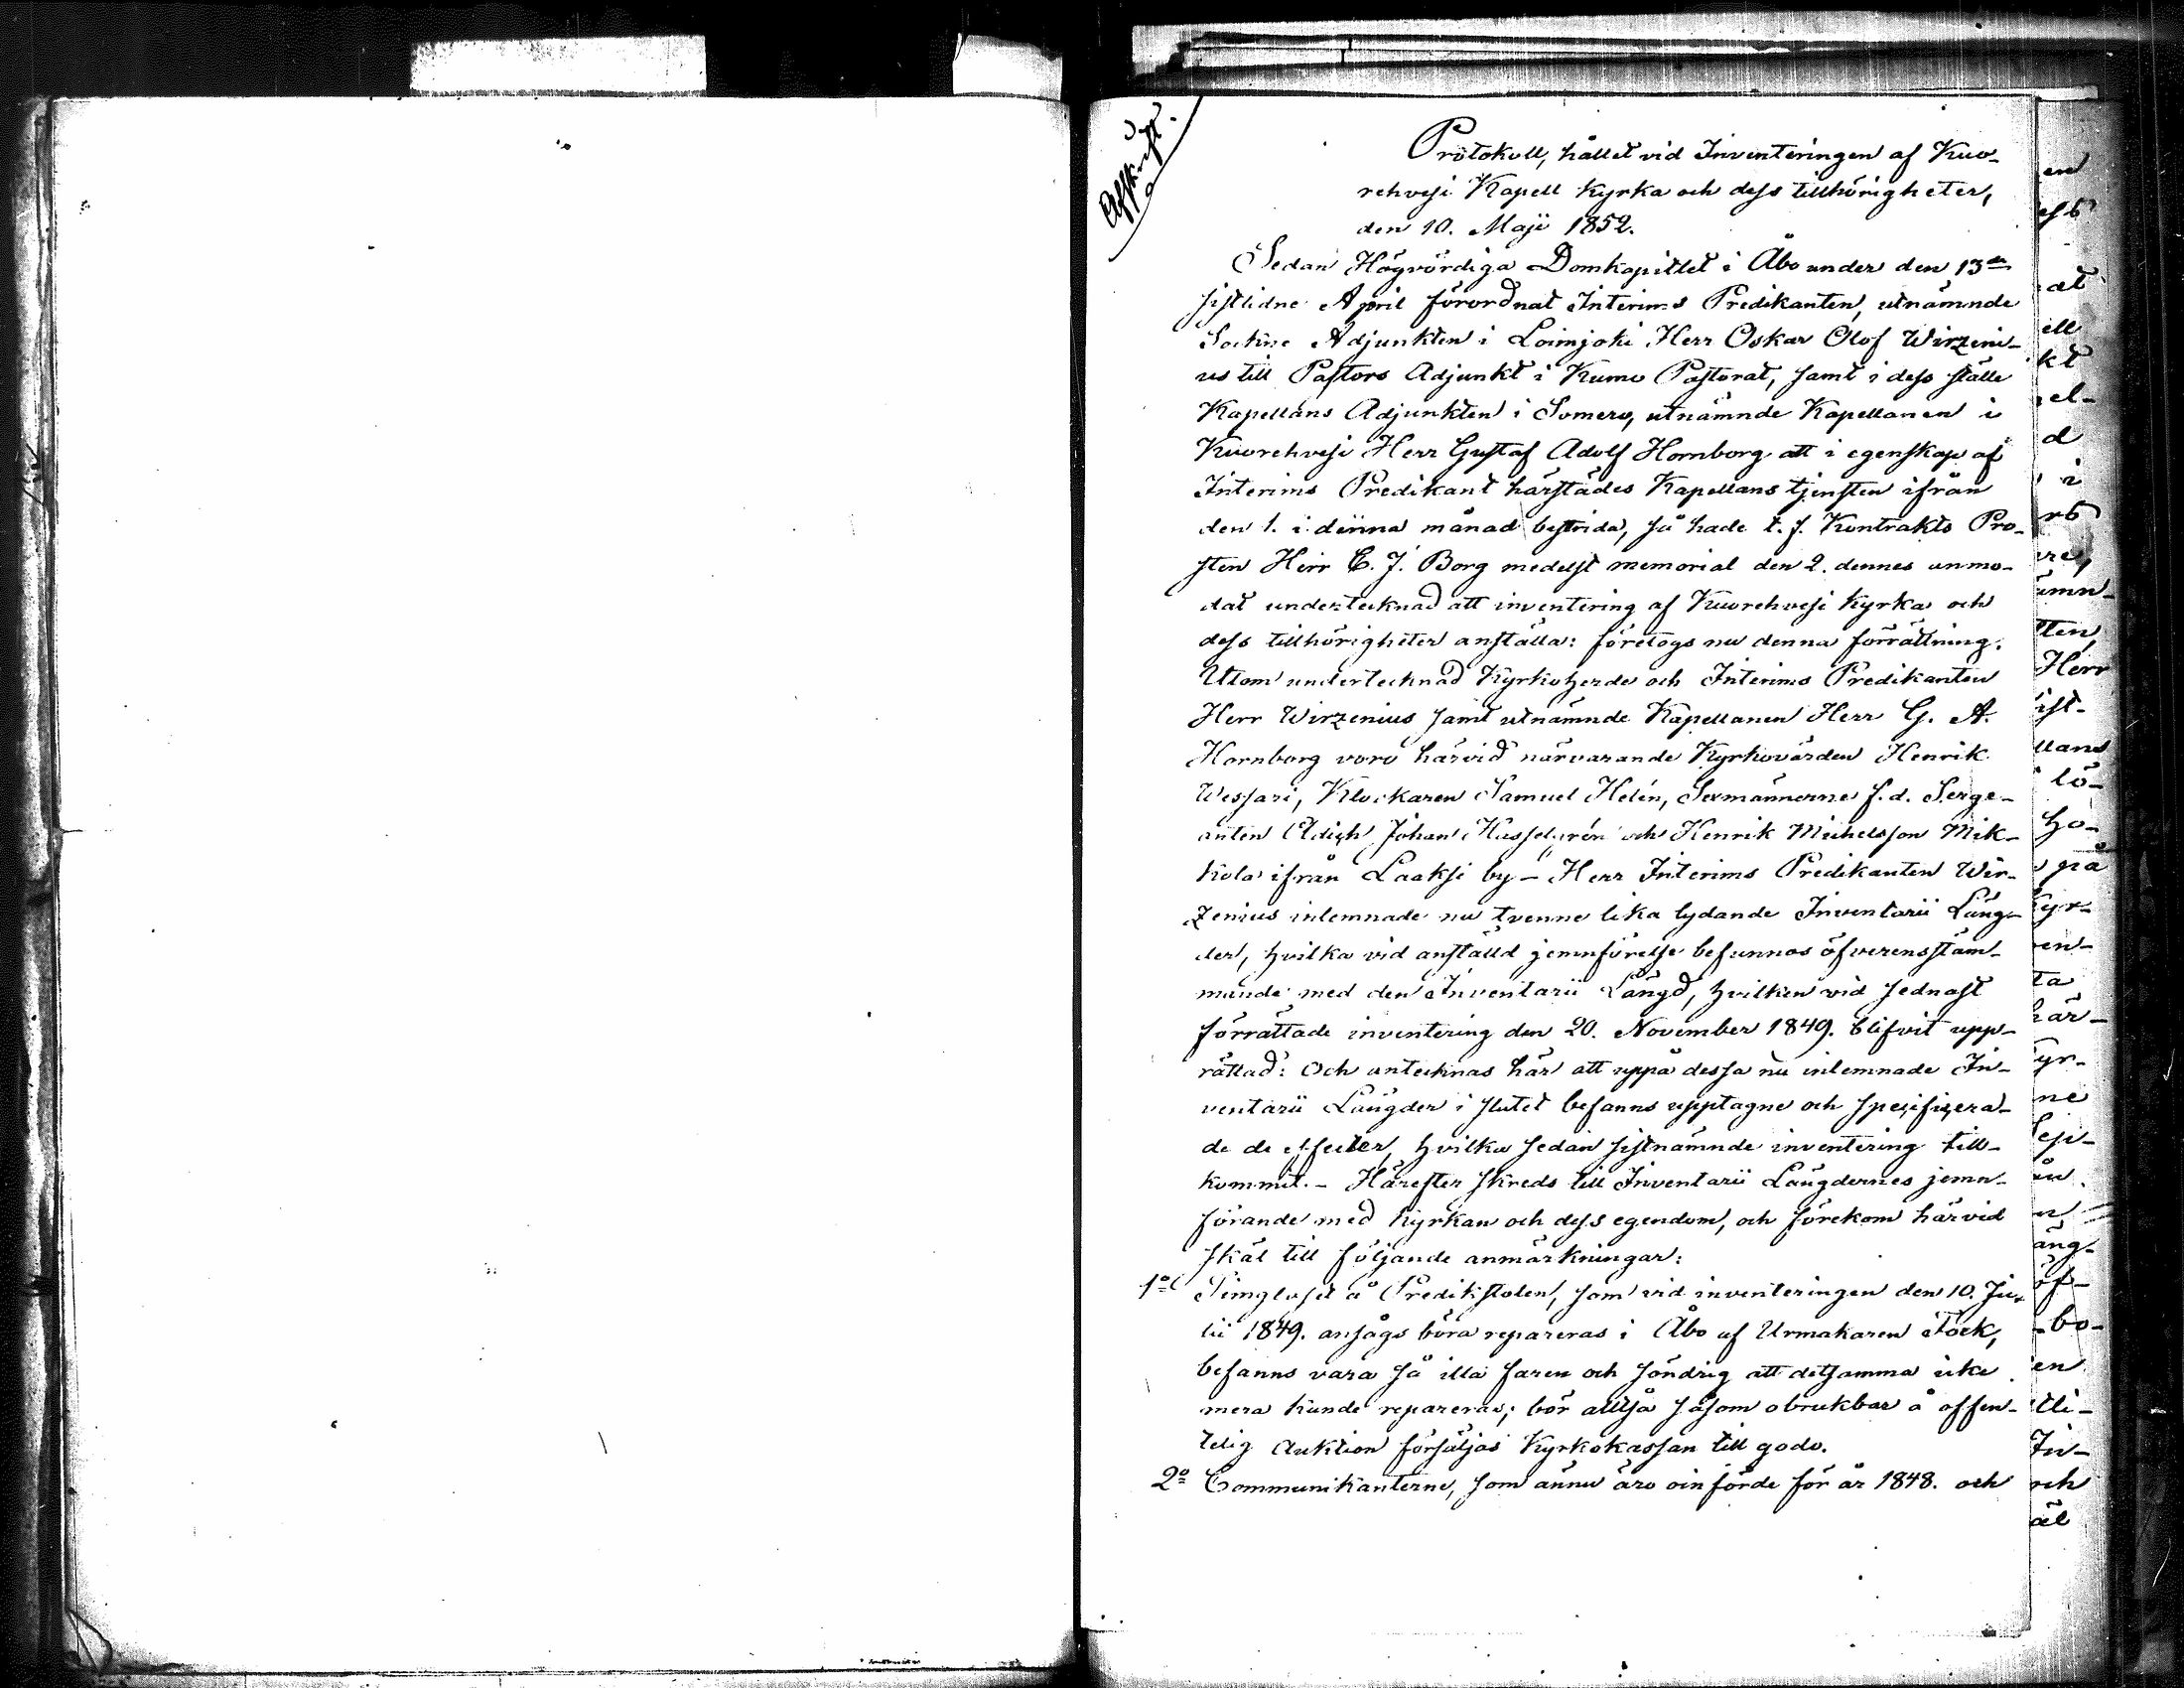 Afskrift.
Protokoll, hållet vid Inventeringen af Kuo-
rehvesi Kapell Kyrka och dess tillhörigheter,
den 10. Maji 1852.
Sedan Högvördiga Domkapitlet i Åbo under den 13de
sistlidne April förordnat Interims Predikanten, utnämnde
Sockne Adjunkten i Loimjoki Herr Oskar Olof Wirzeni-
us till Pastors Adjunkt i Kumo Pastorat, samt i dess ställe
Kapellans Adjunkten i Somero, utnämnde Kapellanen i
Kuorehvesi Herr Gustaf Adolf Hornborg att i egenskap af
Interims Predikant härstädes Kapellans tjensten ifrån
den 1. i denna månad bestrida, så hade t. f. Kontrakts Pro-
sten Herr C. J. Borg medelst memorial den 2. dennes anmo-
dat undertecknad att inventering af Kuorehvesi Kyrka och
dess tillhörigheter anställa: företogs nu denna förrättning.
Utom undertecknad Kyrkoherde och Interims Predikanten
Herr Wirzenius samt utnämnde Kapellanen Herr G. A.
Hornborg voro härvid närvarande Kyrkovärden Henrik
Wessari, Klockaren Samuel Helén, Sexmännerne f.d. Serge-
anten Johan Hasselgrén och Henrik Michelsson Mik-
kola ifrån Laaksi by - Herr Interims Predikanten Wir-
zenius inlemnade nu tvenne lika lydande Inventarii Läng-
der, hvilka vid anställd jemnförelse befunnos öfverensstäm-
mande med den Inventarii Längd, hvilken vid sednast
förrättade inventering den 20. November 1849. blifvit upp-
rättad: Och antecknas här att uppå dessa nu inlemnade In-
ventarii Längder i slutet befanns upptagne och specificera-
de de effecter, hvilka sedan sistnämnde inventering till-
kommit. - Härefter skreds till Inventarii Längdernes jemn-
förande med Kyrkan och dess egendom, och förekom härvid
skäl till följande anmärkningar:
1o Timglaset å Predikstolen, som vid inventeringen den 10. Ju-
lii 1849. ansågs böra repareras i Åbo af Urmakaren Tock,
befanns vara så illa faren och söndrig att detsamma icke
mera kunde repareras; bör alltså såsom obrukbar å offen-
telig Auktion försäljas Kyrkokassan till godo.
2o Communikanterne, som ännu äro oinförde för år 1848. och